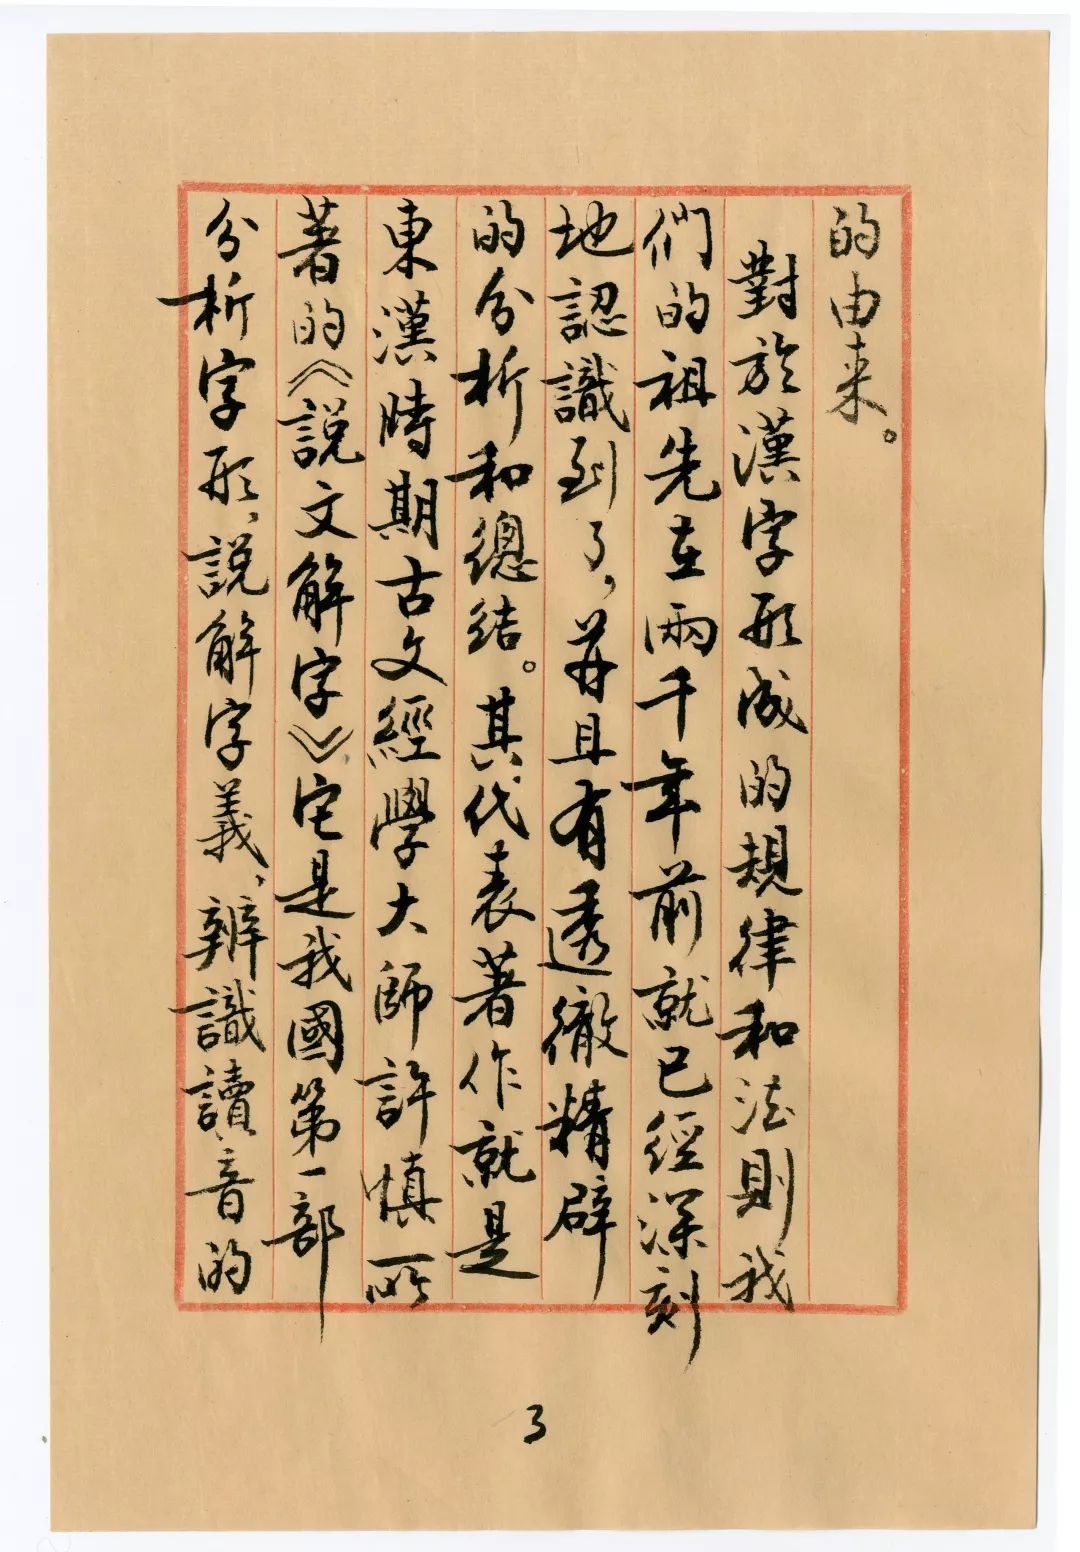 的由来。
對於漢字形成的規律和法則我
們的祖先在兩千年前就已經深刻
地認識到了，并且有透徹精辟
的分析和總結。其代表著作就是
東漢時期古文經學大師許慎所
著的《説文解字》它是我國第一部
分析字形，説解字義，辨識讀音的
3